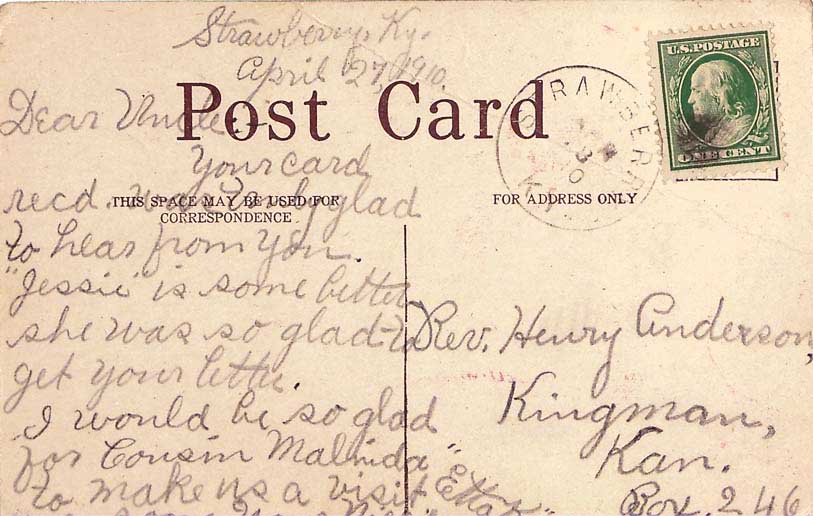 Strawberry, Ky.
April 27, 1910.
Post Card
Dear Uncle:—
Your card
THIS SPACE MAY BE USED FOR
CORRESPONDENCE
recd. was glad
to hear from you.
"Jessie" is some better
she was so glad to
get your letter.
I would be so glad
for Cousin Malinda
to make us a visit.
"Etta"
U.S. POSTAGE
ONE CENT
STRAWBERRY
KY.
FOR ADDRESS ONLY
Rev. Henry Anderson,
Kingman,
Kan.
Box 246